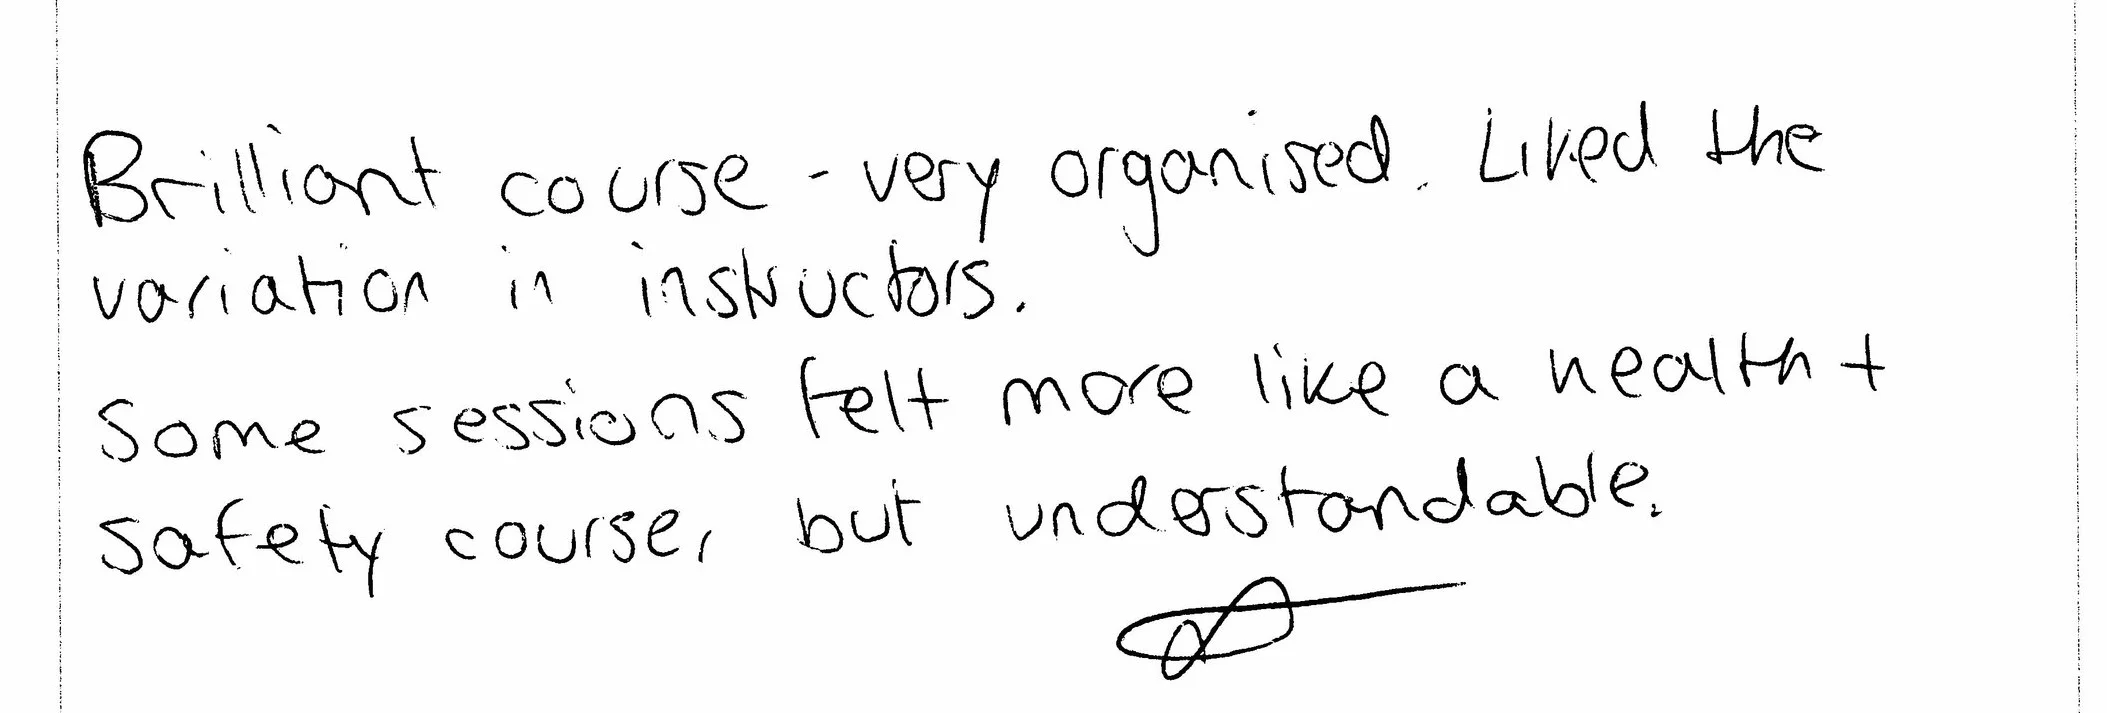 Brilliant course - very organised. Liked the
variation in instructors.
Some sessions felt more like a health +
safety course, but understandable.